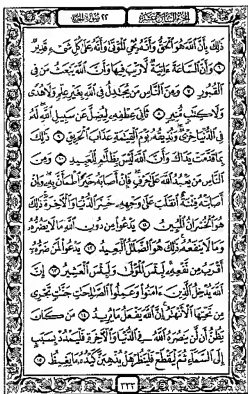 الجزء السابع عشر ٢٢ سورة الحج
ذَٰلِكَ بِأَنَّ ٱللَّهَ هُوَ ٱلْحَقُّ وَأَنَّهُۥ يُحْىِ ٱلْمَوْتَىٰ وَأَنَّهُۥ عَلَىٰ كُلِّ شَىْءٍ قَدِيرٌ
٦ وَأَنَّ ٱلسَّاعَةَ ءَاتِيَةٌ لَّا رَيْبَ فِيهَا وَأَنَّ ٱللَّهَ يَبْعَثُ مَن فِى
ٱلْقُبُورِ ٧ وَمِنَ ٱلنَّاسِ مَن يُجَٰدِلُ فِى ٱللَّهِ بِغَيْرِ عِلْمٍ وَلَا هُدًى
وَلَا كِتَٰبٍ مُّنِيرٍ ٨ ثَانِىَ عِطْفِهِۦ لِيُضِلَّ عَن سَبِيلِ ٱللَّهِ لَهُۥ
فِى ٱلدُّنْيَا خِزْىٌ وَنُذِيقُهُۥ يَوْمَ ٱلْقِيَٰمَةِ عَذَابَ ٱلْحَرِيقِ ٩ ذَٰلِكَ
بِمَا قَدَّمَتْ يَدَاكَ وَأَنَّ ٱللَّهَ لَيْسَ بِظَلَّٰمٍ لِّلْعَبِيدِ ١٠ وَمِنَ
ٱلنَّاسِ مَن يَعْبُدُ ٱللَّهَ عَلَىٰ حَرْفٍ فَإِنْ أَصَابَهُۥ خَيْرٌ ٱطْمَأَنَّ بِهِۦ وَإِنْ
أَصَابَتْهُ فِتْنَةٌ ٱنقَلَبَ عَلَىٰ وَجْهِهِۦ خَسِرَ ٱلدُّنْيَا وَٱلْءَاخِرَةَ ذَٰلِكَ
هُوَ ٱلْخُسْرَانُ ٱلْمُبِينُ ١١ يَدْعُوا۟ مِن دُونِ ٱللَّهِ مَا لَا يَضُرُّهُۥ
وَمَا لَا يَنفَعُهُۥ ذَٰلِكَ هُوَ ٱلضَّلَٰلُ ٱلْبَعِيدُ ١٢ يَدْعُوا۟ لَمَن ضَرُّهُۥٓ
أَقْرَبُ مِن نَّفْعِهِۦ لَبِئْسَ ٱلْمَوْلَىٰ وَلَبِئْسَ ٱلْعَشِيرُ ١٣ إِنَّ
ٱللَّهَ يُدْخِلُ ٱلَّذِينَ ءَامَنُوا۟ وَعَمِلُوا۟ ٱلصَّٰلِحَٰتِ جَنَّٰتٍ تَجْرِى
مِن تَحْتِهَا ٱلْأَنْهَٰرُ إِنَّ ٱللَّهَ يَفْعَلُ مَا يُرِيدُ ١٤ مَن كَانَ
يَظُنُّ أَن لَّن يَنصُرَهُ ٱللَّهُ فِى ٱلدُّنْيَا وَٱلْءَاخِرَةِ فَلْيَمْدُدْ بِسَبَبٍ
إِلَى ٱلسَّمَآءِ ثُمَّ لْيَقْطَعْ فَلْيَنظُرْ هَلْ يُذْهِبَنَّ كَيْدُهُۥ مَا يَغِيظُ ١٥
٣٣٣